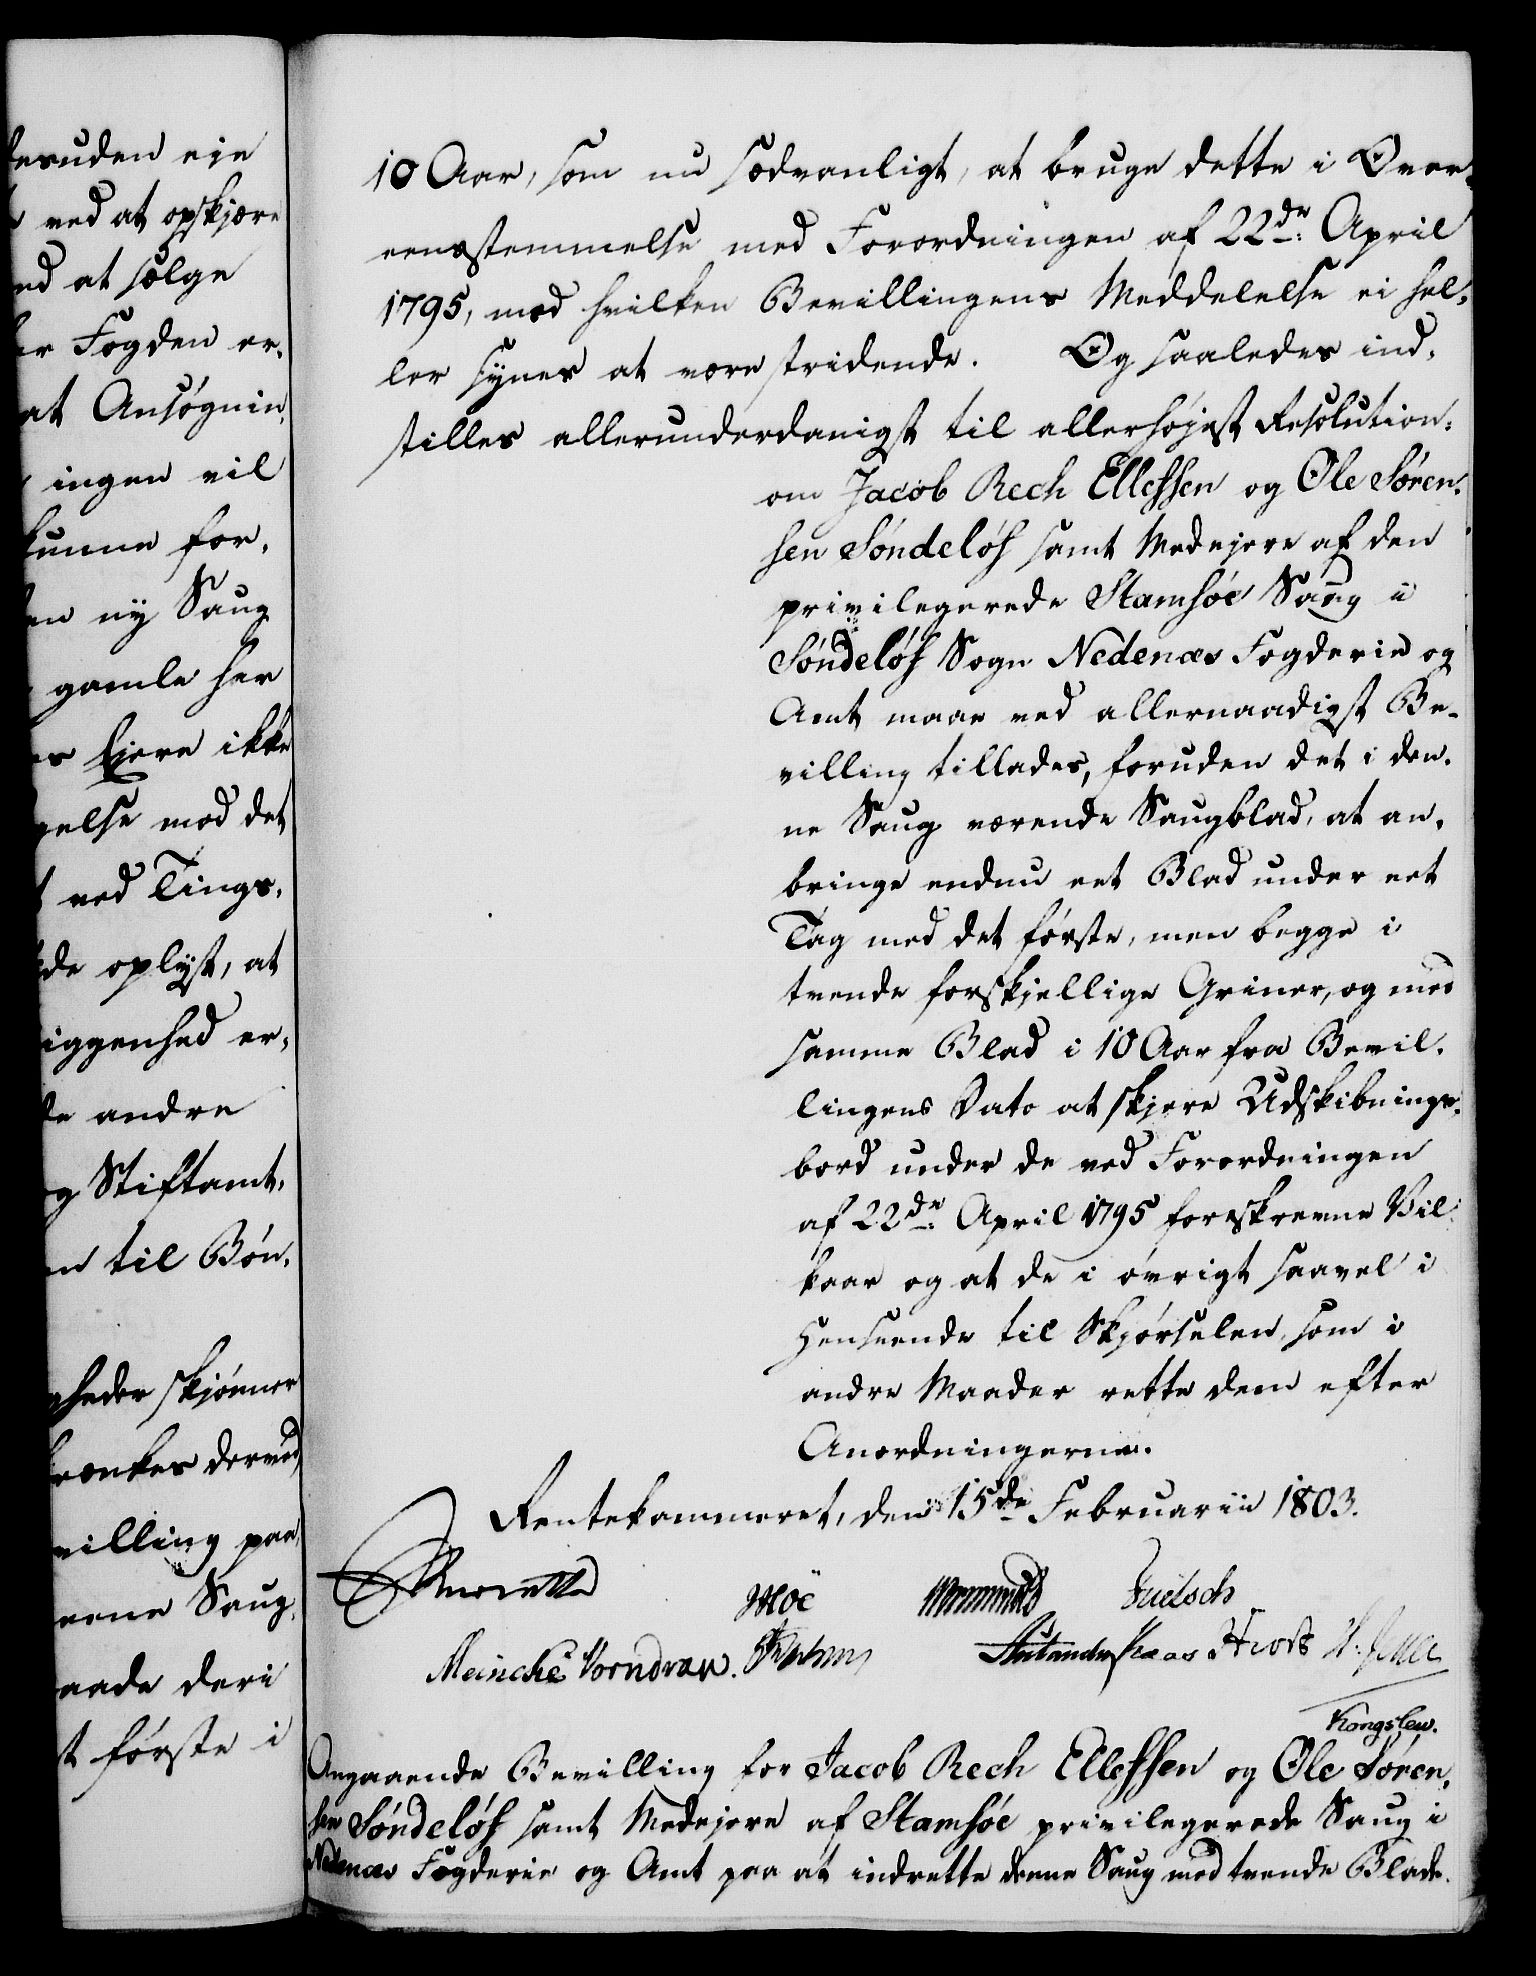 desuden eie
ved at opskjære
ed at sælge
er Fogden er-
at Ansøgnin-
ingen vil
kunne for-
en ny Saug
gamle her
es Ejere ikke
gelse mod det
ved Tings-
de oplyst, at
iggenhed er-
de andre
og Stiftamt-
n til Bøn-
heder skjønner
krænkes derved
villing paa
eene Saug-
aade deri
t første i
10 Aar, som nu sædvanligt, at bruge dette i Over-
eensstemmelse med Forordningen af 22de: April
1795, mod hvilken Bevillingens Meddelelse ei hel-
ler synes at være stridende. Og saaledes ind-
stilles allerunderdanigst til allerhøjest Resolution:
om Jacob Rech Ellefsen og Ole Søren-
sen Søndeløf samt Medejere af den
privilegerede Stamsøe Saug i
Søndeløf Sogn Nedenæs Fogderie og
Amt maae ved allernaadigst Be-
villing tillades, foruden det i den-
ne Saug værende Saugblad, at an-
bringe endnu eet Blad under eet
Tag med det første, men begge i
tvende forskjellige Griner, og med
samme Blad i 10 Aar fra Bevil-
lingens Dato at skjære Udskibnings-
bord under de ved Forordningen
af 22de: April 1795 foreskrevne Vil-
kaar og at de i øvrigt saavel i
Henseende til Skjørselen, som i
andre Maader rette dem efter
Anordningerne.
Rentekammeret, den 15de Februarii 1803.
Moë Wormskiold
Meincke Vorndran.
Kaas
Kongslew.
Angaaende Bevilling for Jacob Rech Ellefsen og Ole Søren-
sen Søndeløf samt Medejere af Stamsøe privilegerede Saug i
Nedenæs Fogderie og Amt paa at indrette denne Saug med tvende Blade.